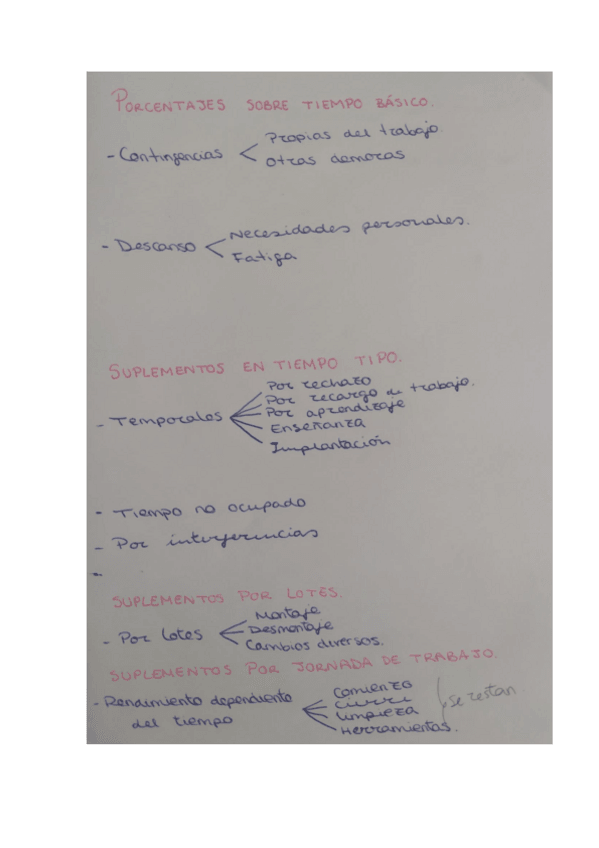 PORCENTAJES SOBRE TIEMPO BÁSICO.
- Contingencias < Propias del trabajo.
Otras demoras
- Descanso < Necesidades personales.
Fatiga
SUPLEMENTOS EN TIEMPO TIPO.
Por rechazo
Por recargo de trabajo.
- Temporales Por aprendizaje
ENSEÑANZA
Implantación
- Tiempo no ocupado
- Por interferencias
-
SUPLEMENTOS POR LOTES.
Montaje
- Por Lotes Desmontaje
Cambios diversos.
SUPLEMENTOS POR JORNADA DE TRABAJO.
Comienzo
- Rendimiento dependiente
Limpieza
del tiempo
Herramientas.
Se restan